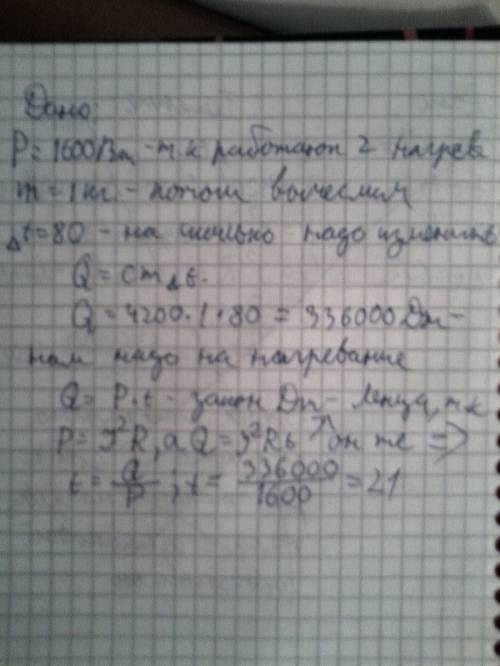 Дано:
P = 1600 Вт - т.к работают 2 нагрев
m = 1 кг. - потом вычеслим
Δt = 80 - на сколько надо изменить
Q = cmΔt.
Q = 4200·1·80 = 336000 Дж -
нам надо на нагревание
Q = P·t - закон Дж - Ленца, т.к
P = J²R, а Q = J²Rt он же =>
t = Q/P ; t = 336000/1600 = 21